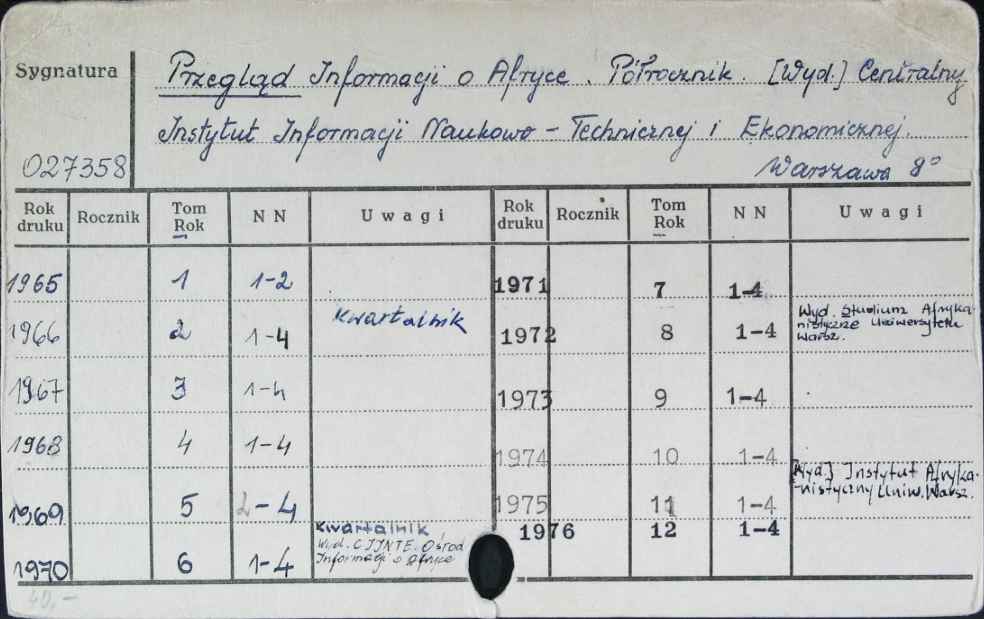 Sygnatura
Przegląd Informacji o Afryce. Półrocznik. [Wyd.] Centralny
Instytut Informacji Naukowo - Technicznej i Ekonomicznej.
027358
Warszawa 8°
Rok druku Rocznik Tom Rok NN Uwagi Rok druku Rocznik Tom Rok NN Uwagi
1965 1 1-2 1971 7 1-4
1966 2 1-4 Kwartalnik 1972 8 1-4 Wyd. Studium Afryka-
nistyczne Uniwersytetu
Warsz.
1967 3 1-4 1973 9 1-4
1968 4 1-4 1974 10 1-4
[Wyd.] Instytut Afryka-
-nistyczny Uniw. Warsz.
1969 5 2-4 1975 11 1-4
Kwartalnik 1976 12 1-4
Wyd. CIINTE. Ośrod
Informacji o Afryce
1970 6 1-4
40,-